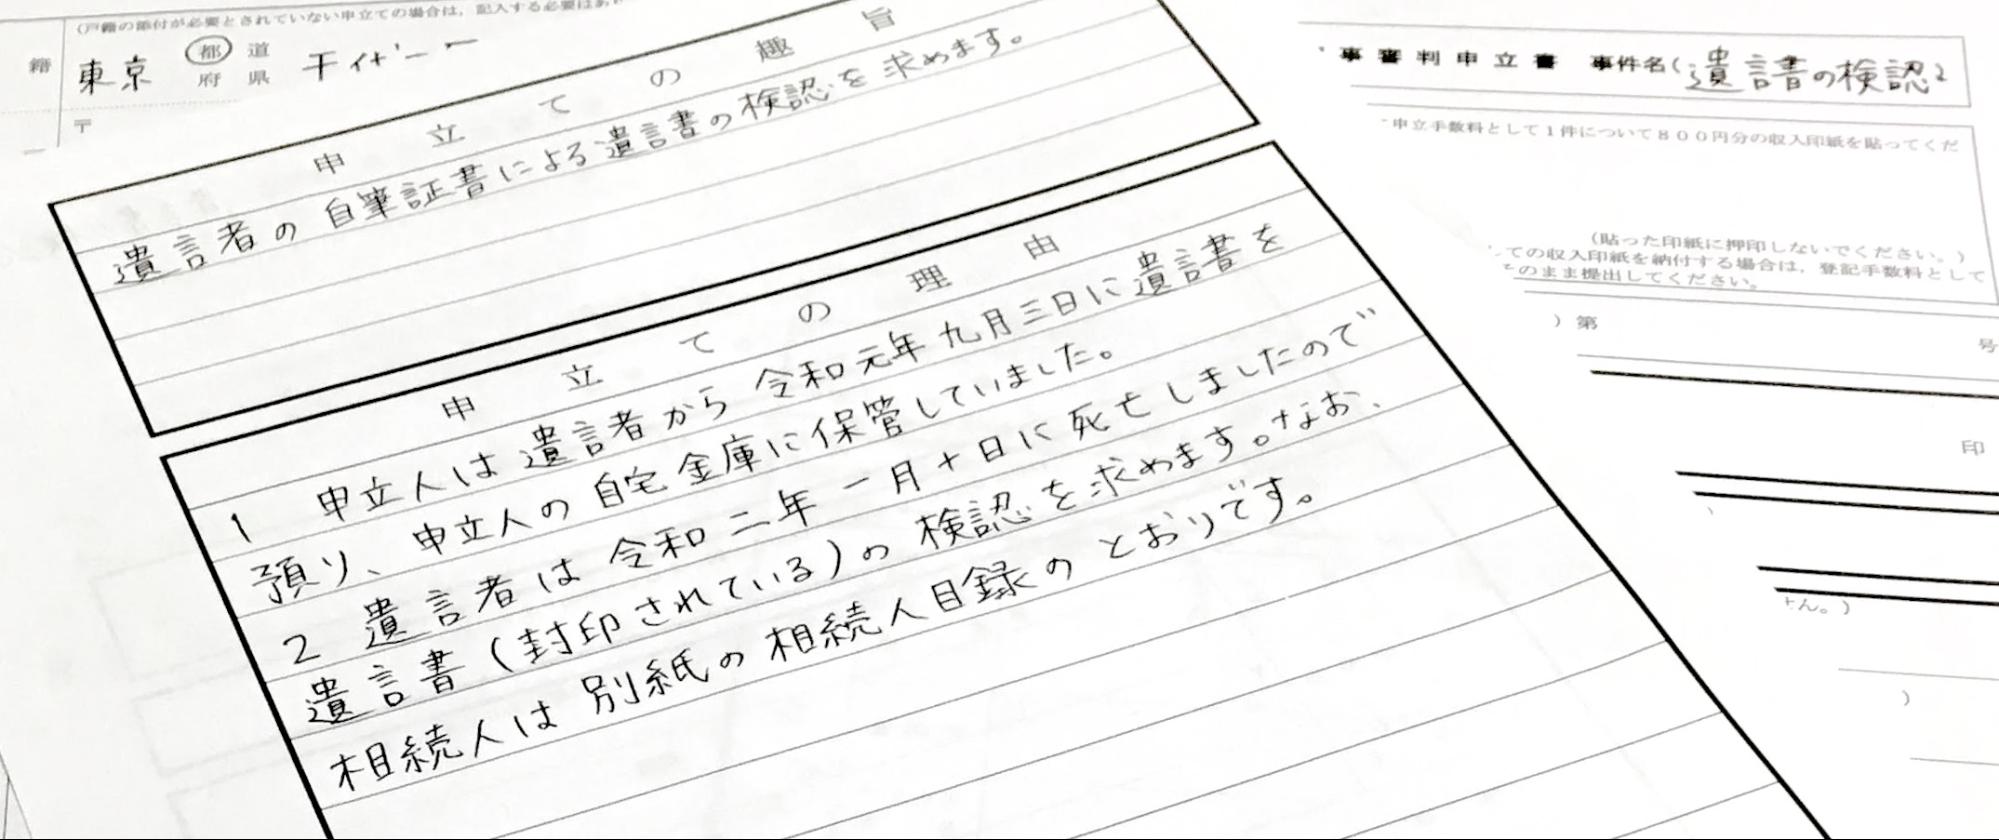 (戸籍の添付が必要とされていない申立ての場合は，記入する必要はあ
籍
東京
都 道
府 県
〒
申立ての趣旨
遺言者の自筆証書による遺言書の検認を求めます。
申立ての理由
1 申立人は遺言者から令和元年九月三日に遺言書を
預り、申立人の自宅金庫に保管していました。
2 遺言者は令和二年一月十日に死亡しましたので
遺言書(封印されている)の検認を求めます。なお、
相続人は別紙の相続人目録のとおりです。
事審判申立書 事件名(遺言書の検認)
申立手数料として1件について800円分の収入印紙を貼ってくだ
(貼った印紙に押印しないでください。)
ての収入印紙を納付する場合は，登記手数料として
そのまま提出してください。
) 第 号
印
せん。)
)